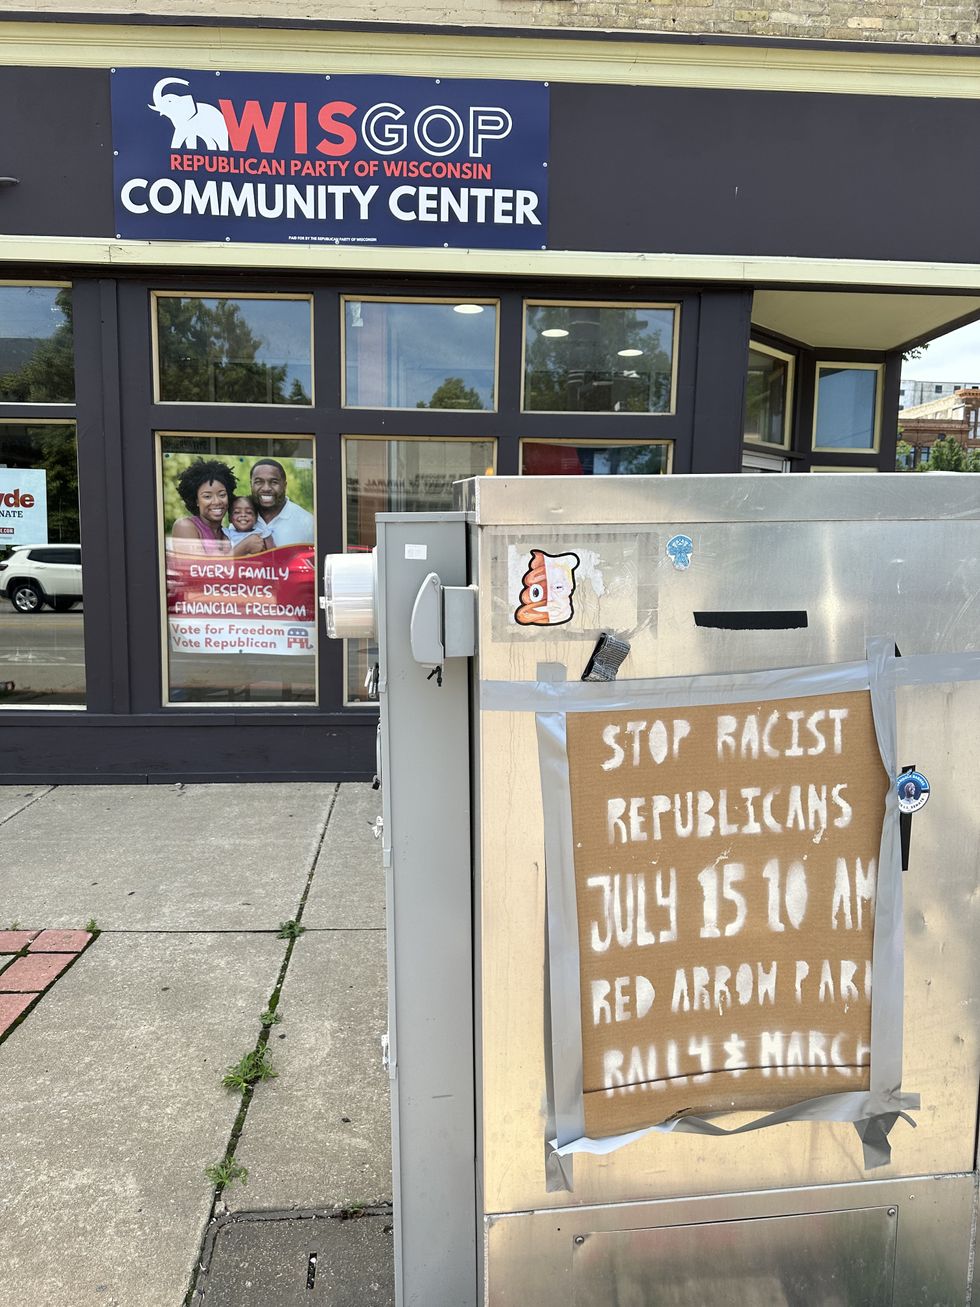 WISGOP
REPUBLICAN PARTY OF WISCONSIN
COMMUNITY CENTER
PAID FOR BY THE REPUBLICAN PARTY OF WISCONSIN
EVERY FAMILY
DESERVES
FINANCIAL FREEDOM
Vote for Freedom
Vote Republican
STOP RACIST
REPUBLICANS
JULY 15 10 AM
RED ARROW PARK
RALLY & MARCH